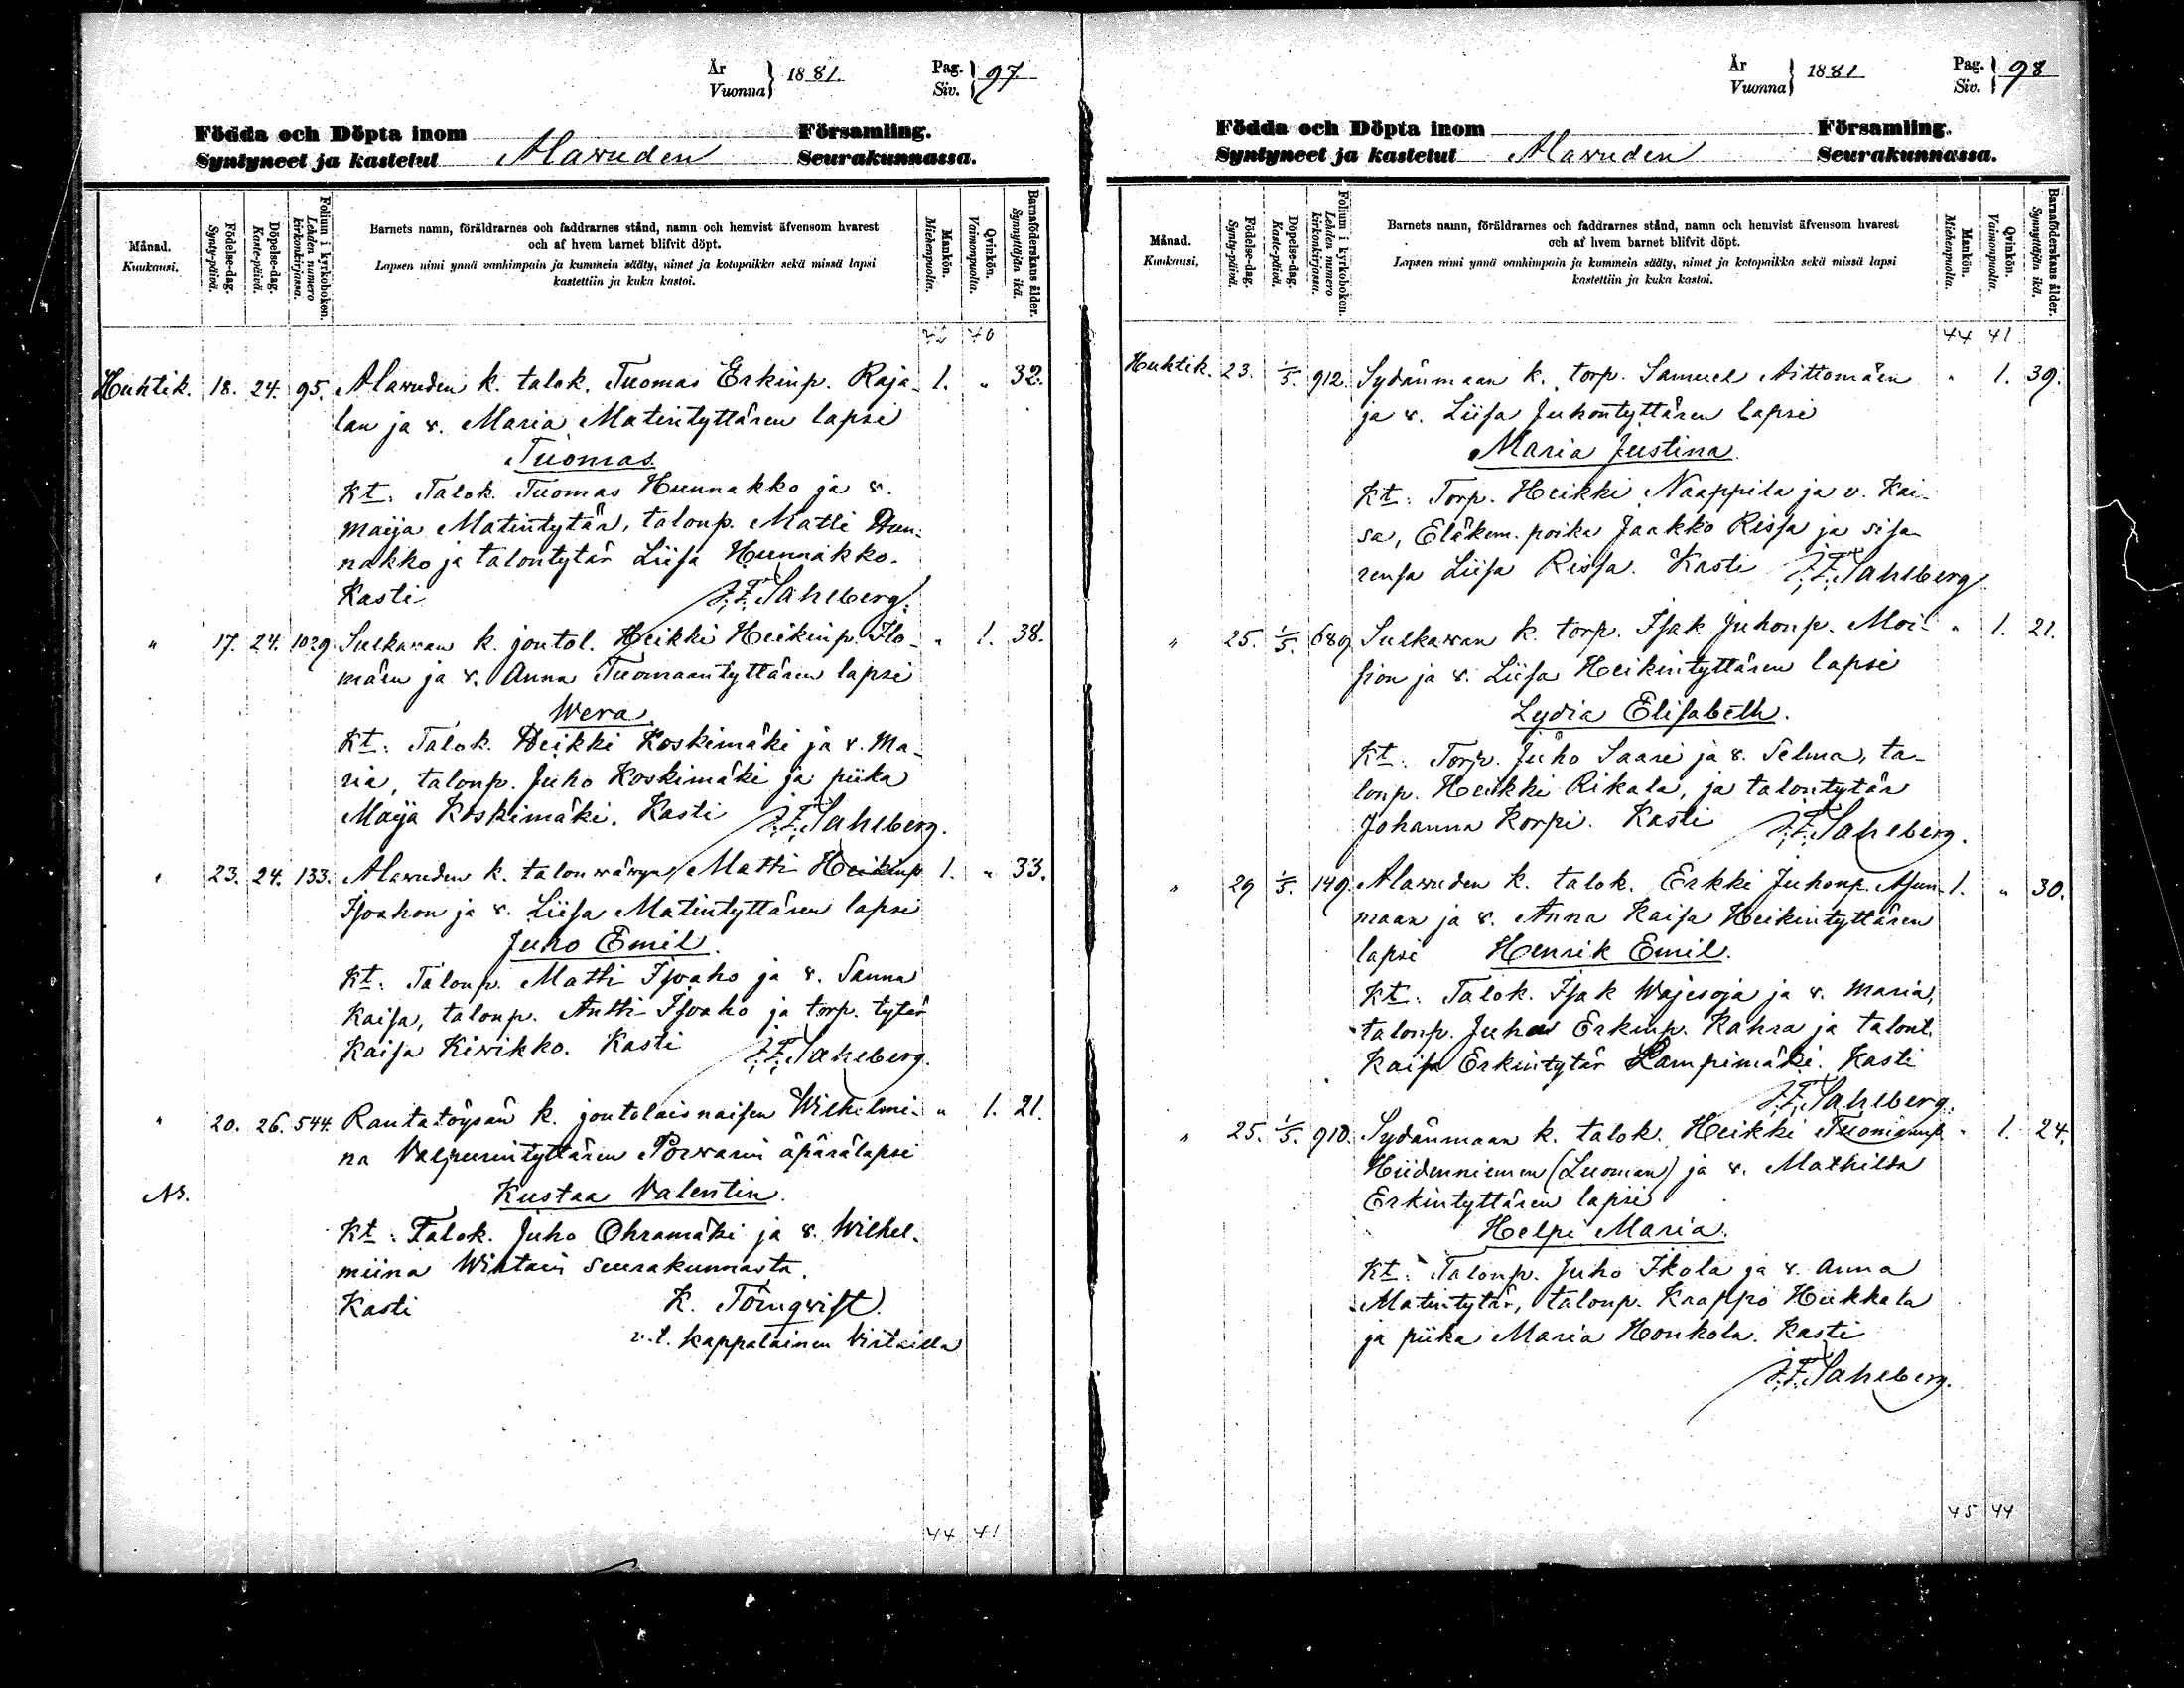 År Vuonna 1881. Pag. Siv. 97
Födda och Döpta inom Församling.
Syntyneet ja kastetut Alavuden Seurakunnassa.
Månad. Kuukausi.
Födelse-dag. Synty-päivä.
Döpelse-dag. Kaste-päivä.
Folium i kyrkoboken. Lehden numero kirkonkirjassa.
Barnets namn, föräldrarnes och faddrarnes stånd, namn och hemvist äfvensom hvarest
och af hvem barnet blifvit döpt.
Lapsen nimi ynnä vanhimpain ja kummein sääty, nimet ja kotopaikka sekä missä lapsi
kastettiin ja kuka kastoi.
Mankön. Miehenpuolia.
Qvinkön. Vaimonpuolia.
Barnaföderskans ålder. Synnyttäjän ikä.
40
Huhtik. 18. 24. 95. Alavuden k. talok. Tuomas Erkinp. Raja- 1. " 32.
lan ja v. Maria Matintyttären lapsi
Tuomas.
Kt. Talok. Tuomas Hunnakko ja v.
Maija Matintytär, talonp. Matti Hun-
nakko ja talontytär Liisa Hunnakko.
Kasti J.F. Sahlberg.
" 17. 24. 1029. Sulkavan k. jontol. Heikki Heikinp. Ilo- " 1. 38.
mäen ja v. Anna Tuomaantyttären lapsi
Wera.
Kt: Talok. Heikki Koskimäki ja v. Ma-
ria, talonp. Juho Koskimäki ja piika
Maija Koskimäki. Kasti J.F. Sahlberg.
" 23. 24. 133. Alavuden k. talonvävyn Matti Heikinp 1. " 33.
Isoahon ja v. Liisa Matintyttären lapsi
Juho Emil.
Kt: Talonp. Matti Isoaho ja v. Sanna
Kaisa, talonp. Antti Isoaho ja torp. tytär
Kaisa Kiwikko. Kasti J.F. Sahlberg.
" 20. 26. 544. Rantatöysän k. jontolaisnaisen Wilhelmi- " 1. 21.
na Valpurintyttären Porvarin äpärälapsi
Kustaa Valentin.
Kt: Talok. Juho Ohramäki ja v. Wilhel-
miina Wirtain seurakunnasta.
Kasti K. Törnqvist.
v.t. kappalainen Virtailla
44 41
År Vuonna 1881 Pag. Siv. 98
Födda och Döpta inom Församling.
Syntyneet ja kastetut Alavuden Seurakunnassa.
Månad. Kuukausi.
Födelse-dag. Synty-päivä.
Döpelse-dag. Kaste-päivä.
Folium i kyrkoboken. Lehden numero kirkonkirjassa.
Barnets namn, föräldrarnes och faddrarnes stånd, namn och hemvist äfvensom hvarest
och af hvem barnet blifvit döpt.
Lapsen nimi ynnä vanhimpain ja kummein sääty, nimet ja kotopaikka sekä missä lapsi
kastettiin ja kuka kastoi.
Mankön. Miehenpuolia.
Qvinkön. Vaimonpuolia.
Barnaföderskans ålder. Synnyttäjän ikä.
44 41
Huhtik. 23. 1/5. 912. Sydänmaan k. torp. Samuel Aittomäen " 1. 39.
ja v. Liisa Juhontyttären lapsi
Maria Justina.
Kt: Torp. Heikki Naappila ja v. Kai-
sa, Eläkem. poika Jaakko Rissa ja sisa-
rensa Liisa Rissa. Kasti J.F. Sahlberg
" 25. 1/5. 689. Sulkavan k. torp. Isak Juhonp. Moi- " 1. 21.
sion ja v. Liisa Heikintyttären lapsi
Lydia Elisabeth.
Kt: Torp. Juho Saari ja v. Selma, ta-
lonp. Heikki Rikala, ja talontytär
Johanna Korpi. Kasti J.F. Sahlberg.
" 29 1/5. 149. Alavuden k. talok. Erkki Juhonp. Asun- 1. " 30.
maan ja v. Anna Kaisa Heikintyttären
lapsi Henrik Emil.
Kt: Talok. Isak Wajesoja ja v. Maria,
talonp. Juha Erkinp. Kahra ja talont.
Kaisa Erkintytär Lampimäki. Kasti
J.F. Sahlberg.
" 25. 1/5. 910. Sydänmaan k. talok. Heikki Tuomaanp " 1. 24.
Hiidenniemen (Luoman) ja v. Mathilda
Erkintyttären lapsi
Helpi Maria.
Kt: Talonp. Juho Ikola ja v. Anna
Matintytär, talonp. Kaappo Heikkala
ja piika Maria Honkola. Kasti
J.F. Sahlberg.
45 44